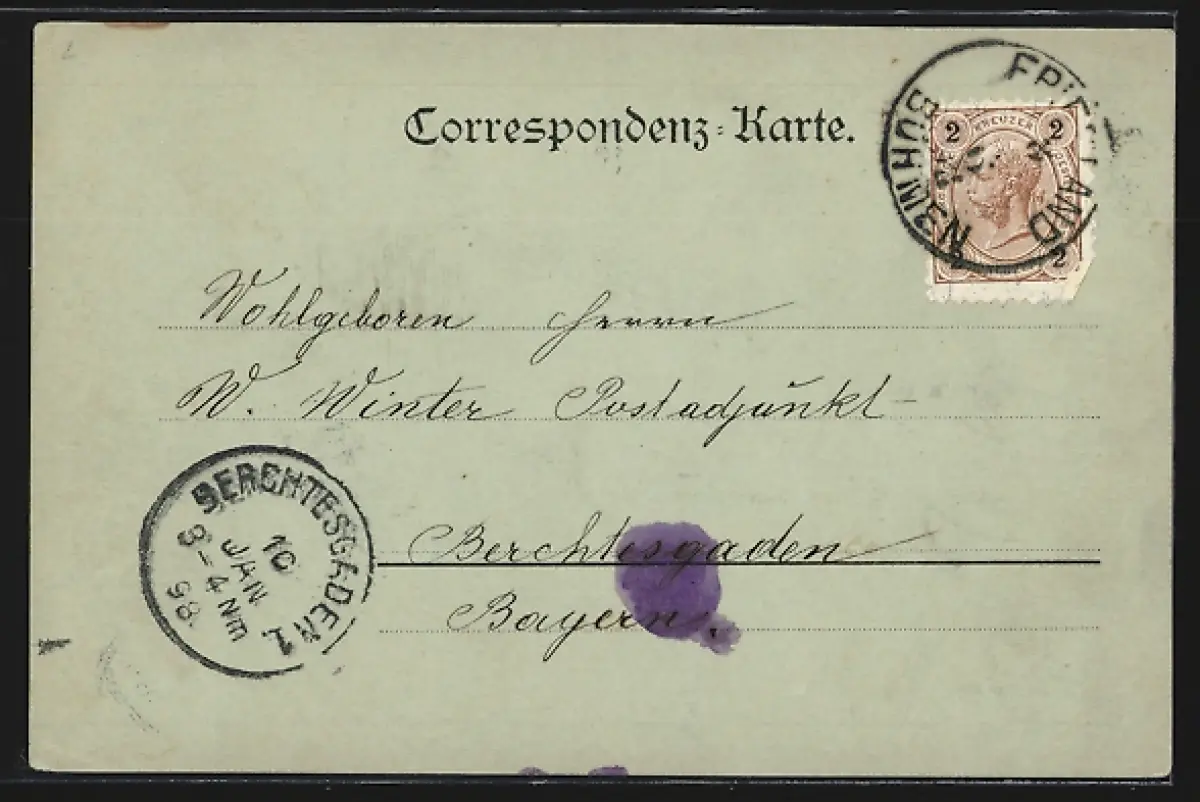 Correspondenz-Karte.
FRIEDLAND
BÖHMEN
2 KREUZER 2
2 2
Wohlgeboren Herrn
W. Winter Postadjunkt
BERCHTESGADEN 1.
10
JAN
3-4 NM
98
Berchtesgaden
Bayern.